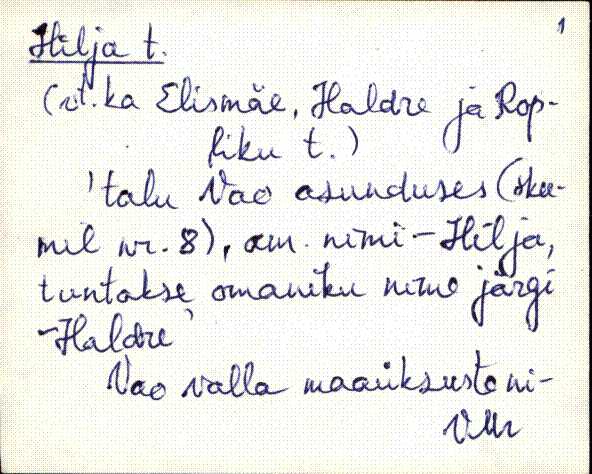 1
Hilja t.
(vt. ka Elismäe, Haldre ja Rop-
liku t.)
'talu Vao asunduses (skee-
mil nr. 8), am. nimi - Hilja,
tuntakse omaniku nime järgi
- Haldre'
Vao valla maaüksuste ni-